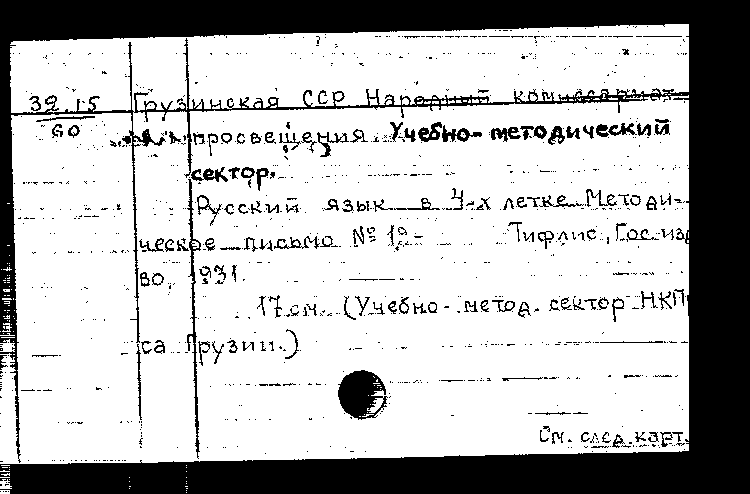 39.15
60
Грузинская ССР Народный комиссариат
просвещения. Учебно-методический
сектор.
Русский язык в 4-х летке Методи-
ческое письмо № 12-   Тифлис, Гос. изд
во, 1931.
17 см. (Учебно-метод. сектор НКП
са Грузии.)
См. след. карт.